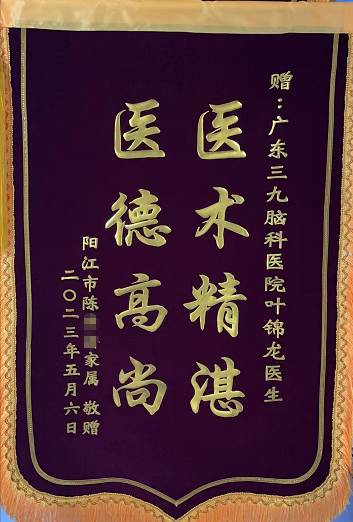 赠：广东三九脑科医院叶锦龙医生
医术精湛
医德高尚
阳江市陈家属 敬赠
二〇二三年五月六日